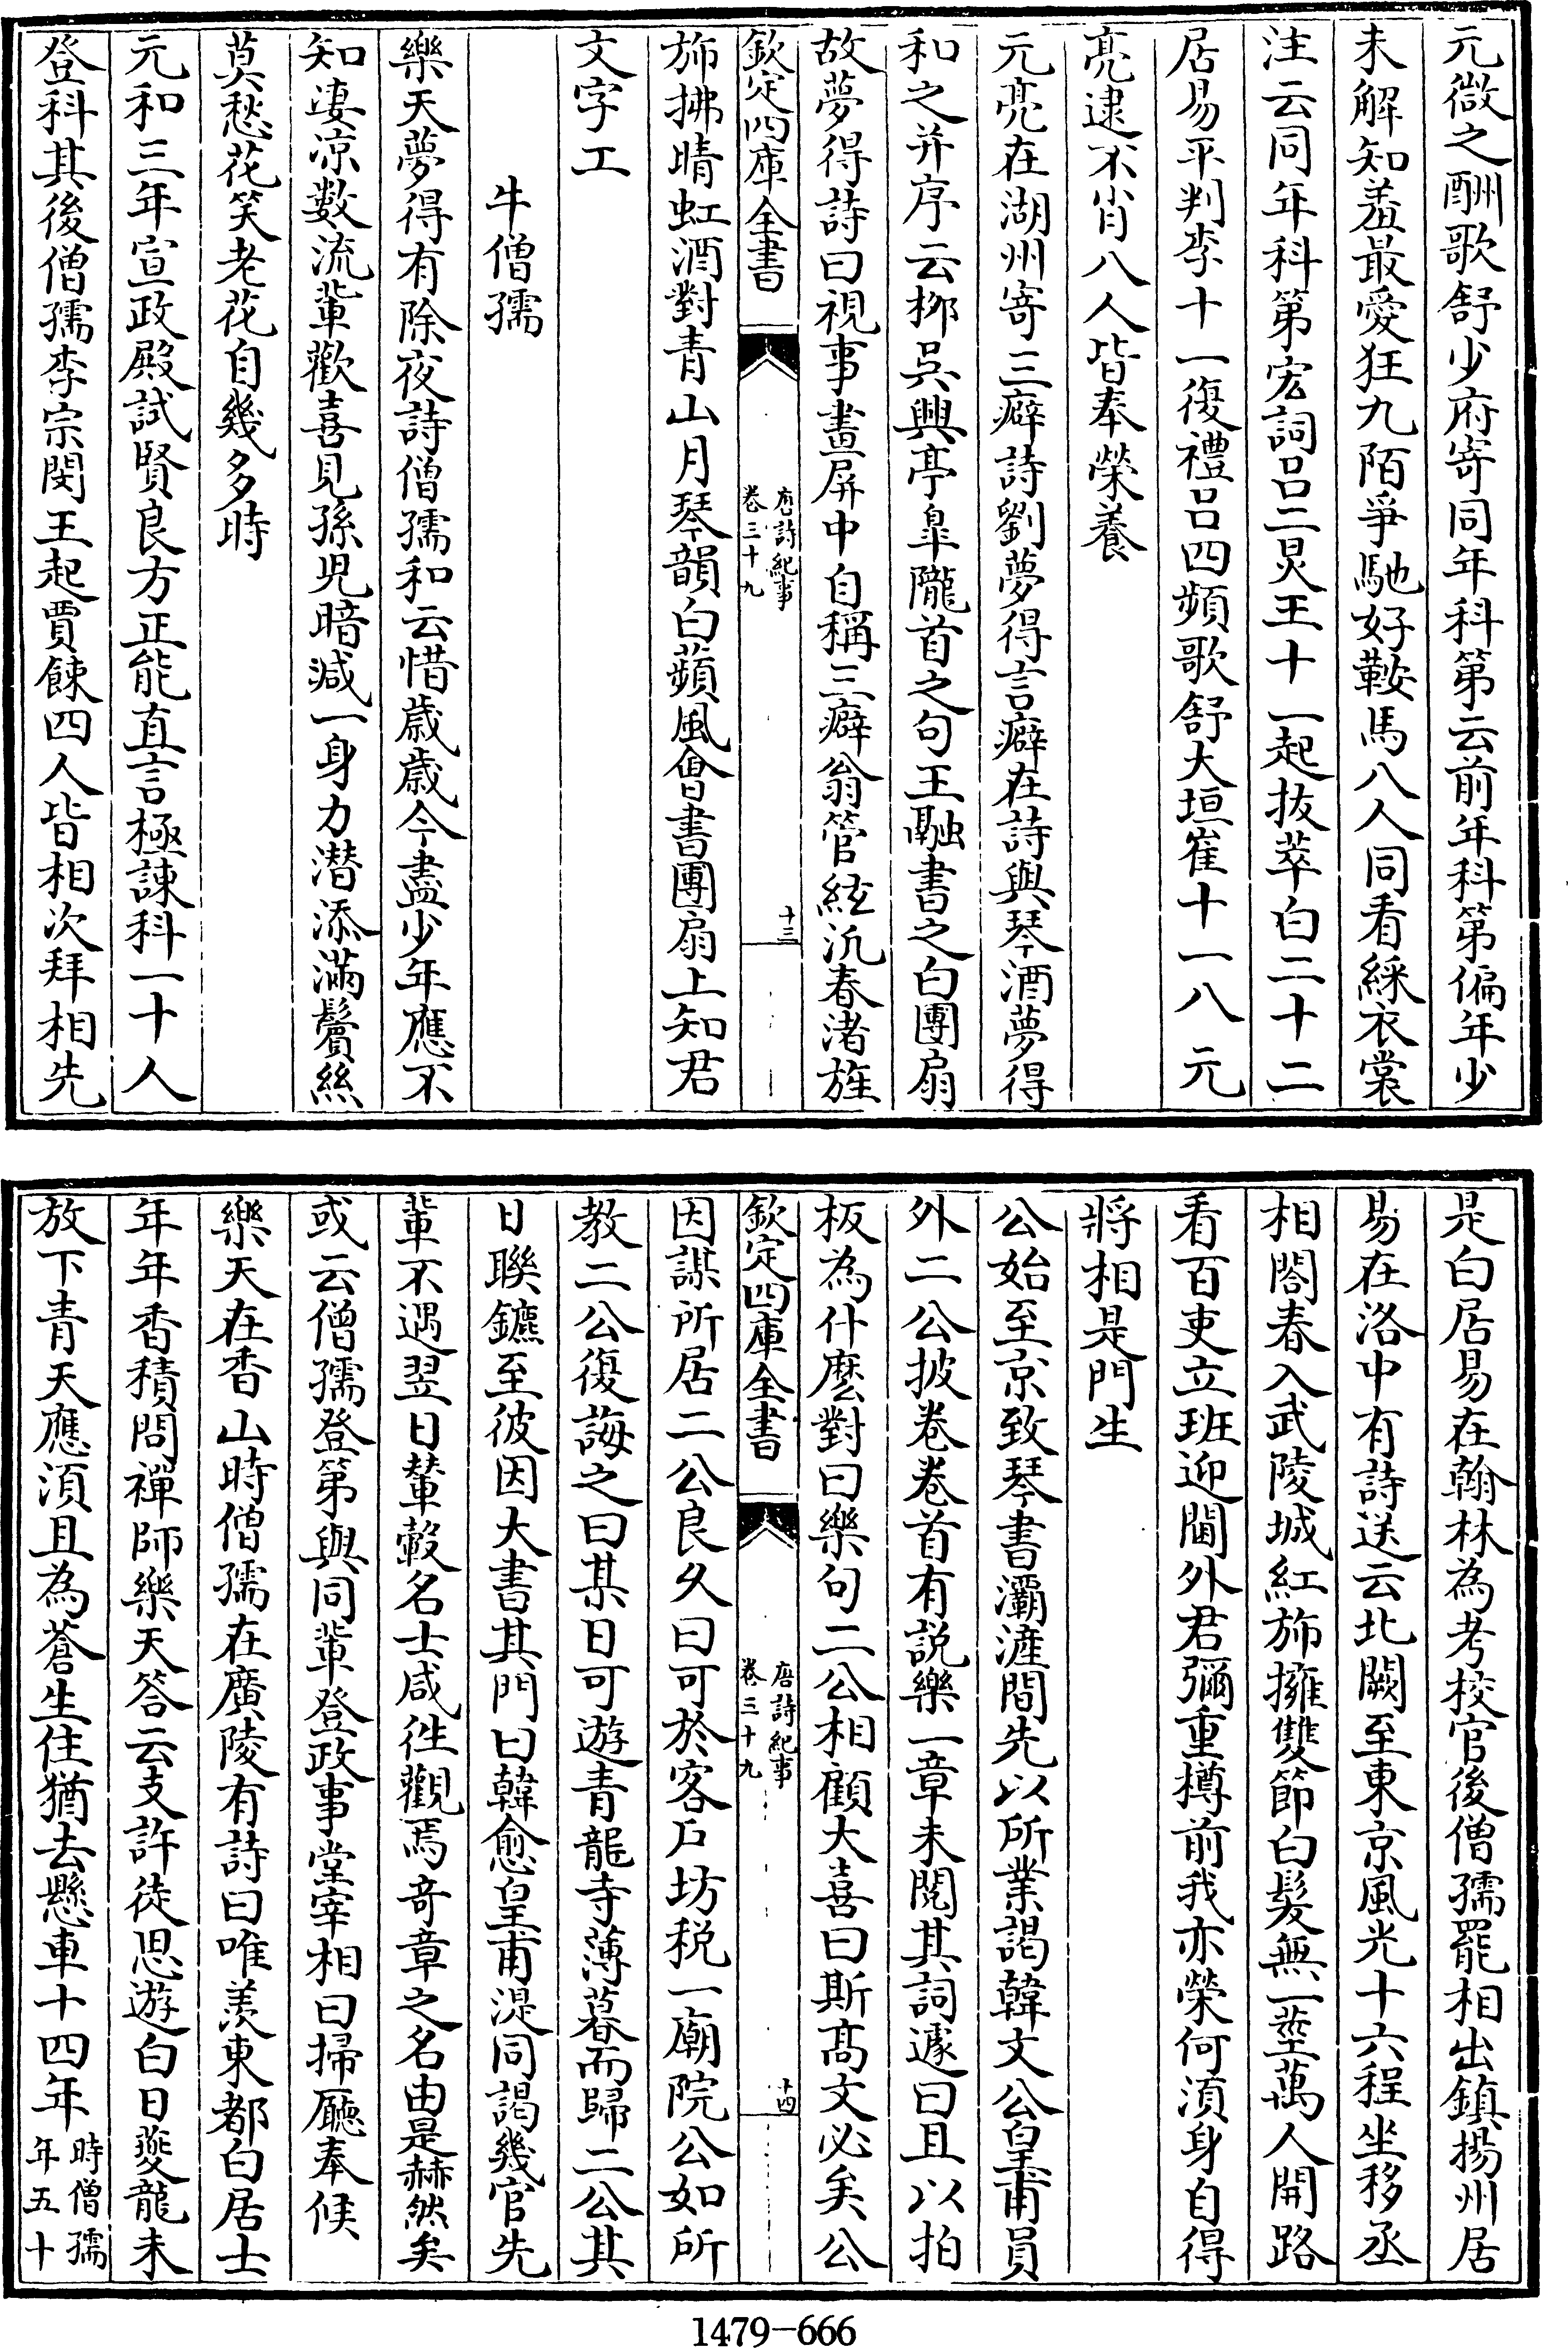 元微之酬歌舒少府寄同年科第云前年科第偏年少
未解知羞最愛狂九陌爭馳好鞍馬八人同看綵衣裳
注云同年科第宏詞呂二炅王十一起抜萃白二十二
居易平判李十一復禮呂四頻歌舒大垣崔十一八元
亮逮不肖八人皆奉榮養
元亮在湖州寄三癖詩劉夢得言癖在詩與琴酒夢得
和之并序云栁吳興亭臯隴首之句王融書之白團扇
故夢得詩曰視事畫屏中自稱三癖翁管絃汎春渚旌
欽定四庫全書
唐詩紀事
卷三十九
十三
斾拂晴虹酒對青山月琴韻白蘋風㑹書團扇上知君
文字工
牛僧孺
樂天夢得有除夜詩僧孺和云惜歲歲今盡少年應不
知淒凉數流輩歡喜見孫兒暗減一身力潛添滿鬢絲
莫愁花笑老花自幾多時
元和三年宣政殿試賢良方正能直言極諫科一十人
登科其後僧孺李宗閔王起賈餗四人皆相次拜相先
是白居易在翰林為考校官後僧孺罷相出鎮揚州居
易在洛中有詩送云北闕至東京風光十六程坐移丞
相閤春入武陵城紅斾擁雙節白髮無一莖萬人開路
看百吏立班迎閫外君彌重樽前我亦榮何須身自得
將相是門生
公始至京致琴書灞滻間先以所業謁韓文公皇甫員
外二公披卷卷首有説樂一章未閱其詞遽曰且以拍
板為什麽對曰樂句二公相顧大喜曰斯髙文必矣公
欽定四庫全書
唐詩紀事
卷三十九
十四
因謀所居二公良久曰可於客戶坊税一廟院公如所
教二公復誨之曰某日可遊青龍寺薄暮而歸二公其
日聯鑣至彼因大書其門曰韓愈皇甫湜同謁幾官先
輩不遇翌日輦轂名士咸徃觀焉竒章之名由是赫然矣
或云僧孺登第與同輩登政事堂宰相曰掃廳奉候
樂天在香山時僧孺在廣陵有詩曰唯羨東都白居士
年年香積問禪師樂天答云支許徒思遊白日夔龍未
放下青天應須且為蒼生住猶去懸車十四年時僧孺
年五十
1479-666